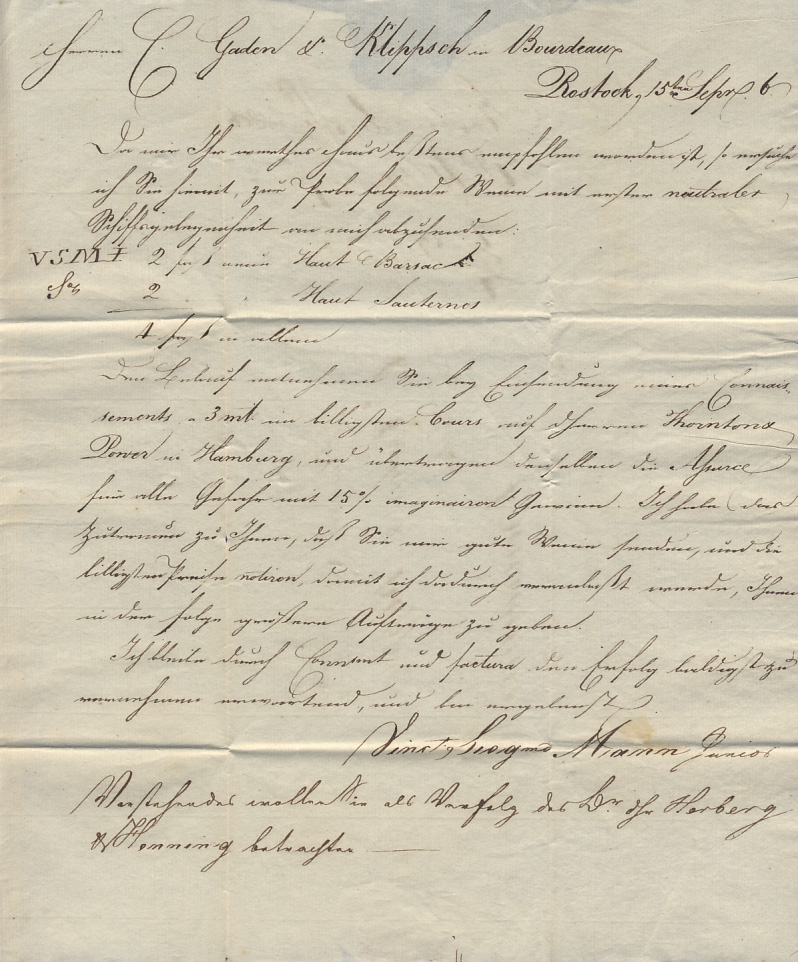 Herren C. Gaden & Klippsch in Bourdeaux
Rostock, 15ten Sepr. 6
Da mir Ihr werthes Haus bestens empfohlen worden ist, so ersuche
ich Sie hiemit, zur Probe folgende Weine mit erster neutraler
Schiffsgelegenheit an mich abzusenden:
VSM 2 neue Haut Barsac
2 " Haut Sauternes
4 in allem
Den Belauf entnehmen Sie bey Einsendung eines Connais-
sements, a 3 mt. im billigsten Cours auf dHerren Thornton &
Power in Hamburg, und übertragen denselben die Assurce
für alle Gefahr mit 15% imaginairen Gewinn. Ich habe das
Zutrauen zu Ihnen, daß Sie mir gute Weine senden, und die
billigsten Preise notiren, damit ich dadurch veranlaßt werde, Ihnen
in der Folge größere Aufträge zu geben.
Ich bleibe durch Connsmt und factura den Erfolg baldigst zu
vernehmen erwartend, und bin ergebenst
Mann Junior
Vorstehendes wollen Sie als Verfolg des Br. Herberg
& Henning betrachten